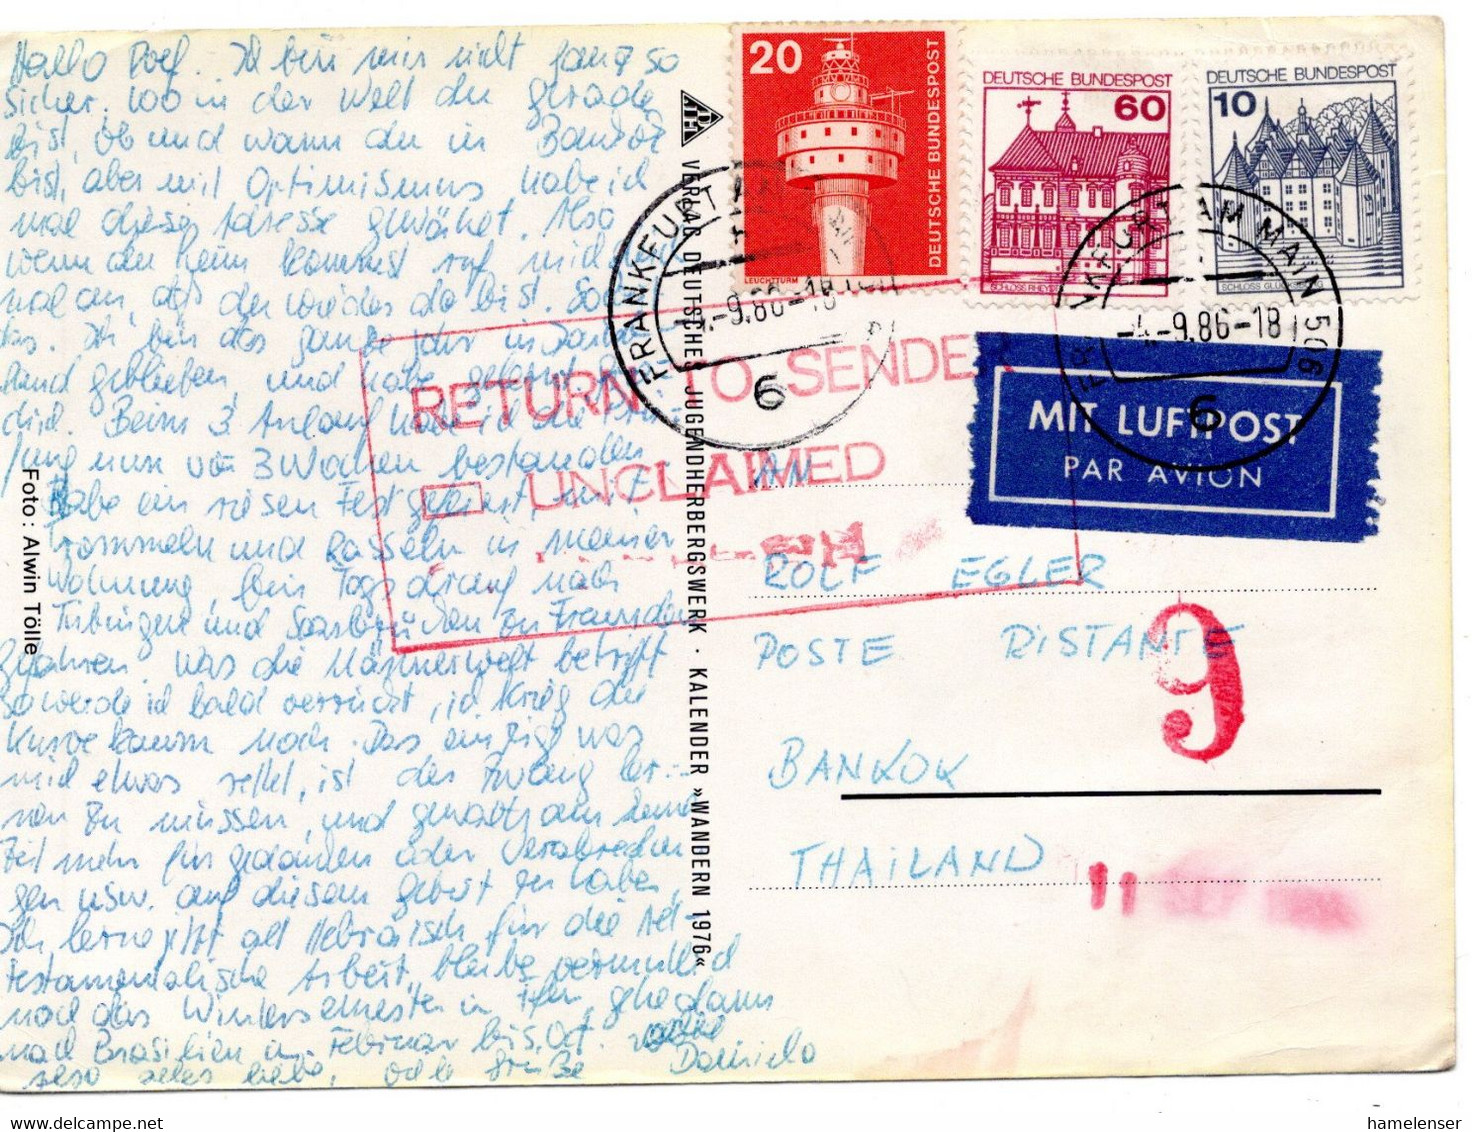 Hallo Rolf. Ich bin mir nicht ganz so
sicher, wo in der Welt du gerade
bist, ob und wann du in Bankok
bist, aber mit Optimismus habe ich
mal diese Adresse gewählt. Also
wenn du heim kommst ruf mich
mal an, daß du wieder da bist.
das. Ich bin das ganze Jahr in
land geblieben, und habe
dich. Beim 3. Anlauf habe ich die
fung nun vor 3 Wochen bestanden
Habe ein riesen Fest gefeiert, mit
Trommeln und Rasseln in meiner
Wohnung, bin Tags drauf nach
Tübingen und Saarbrücken zu Freunden
gefahren. Was die Männerwelt betrifft
so werde ich bald verrückt, ich krieg die
Kurve kaum noch. Das einzige was
mich etwas rettet, ist der Zwang ler-
nen zu müssen, und
Zeit mehr für gedanken oder
gen usw. auf diesem gebiet zu haben.
Ich lerne jetzt alt Hebräisch für die Alt-
testamentalische Arbeit, bleibe vermutlich
noch das Wintersemester in gehe dann
nach Brasilien Februar bis Oct.
also alles liebe, Grüße Daniela
Foto: Alwin Tölle
VERLAG DEUTSCHES JUGENDHERBERGSWERK · KALENDER »WANDERN 1976«
20
DEUTSCHE BUNDESPOST
LEUCHTTURM
DEUTSCHE BUNDESPOST
60
DEUTSCHE BUNDESPOST
10
FRANKFURT
-9.86-18
6
FRANKFURT AM MAIN 506
-4.-9.86-18
6
RETURN TO SENDER
UNCLAIMED
MIT LUFTPOST
PAR AVION
AN
ROLF EGLER
POSTE RISTANTE
9
BANKOK
THAILAND
hamelenser
hamelenser.com